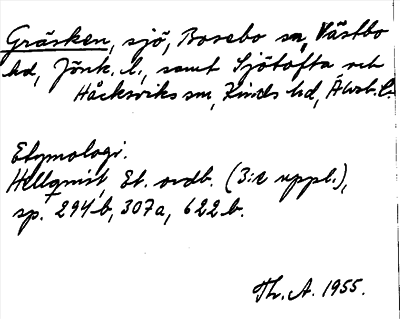 Gräsken, sjö, Bosebo sn, Västbo
hd, Jönk. l., samt Sjötofta och
Håcksviks sn, Kinds hd, Älvsb. l.
Etymologi.
Hellquist, Et. ordb. (3:e uppl.),
sp. 294b, 307a, 622b.
Th. A. 1955.